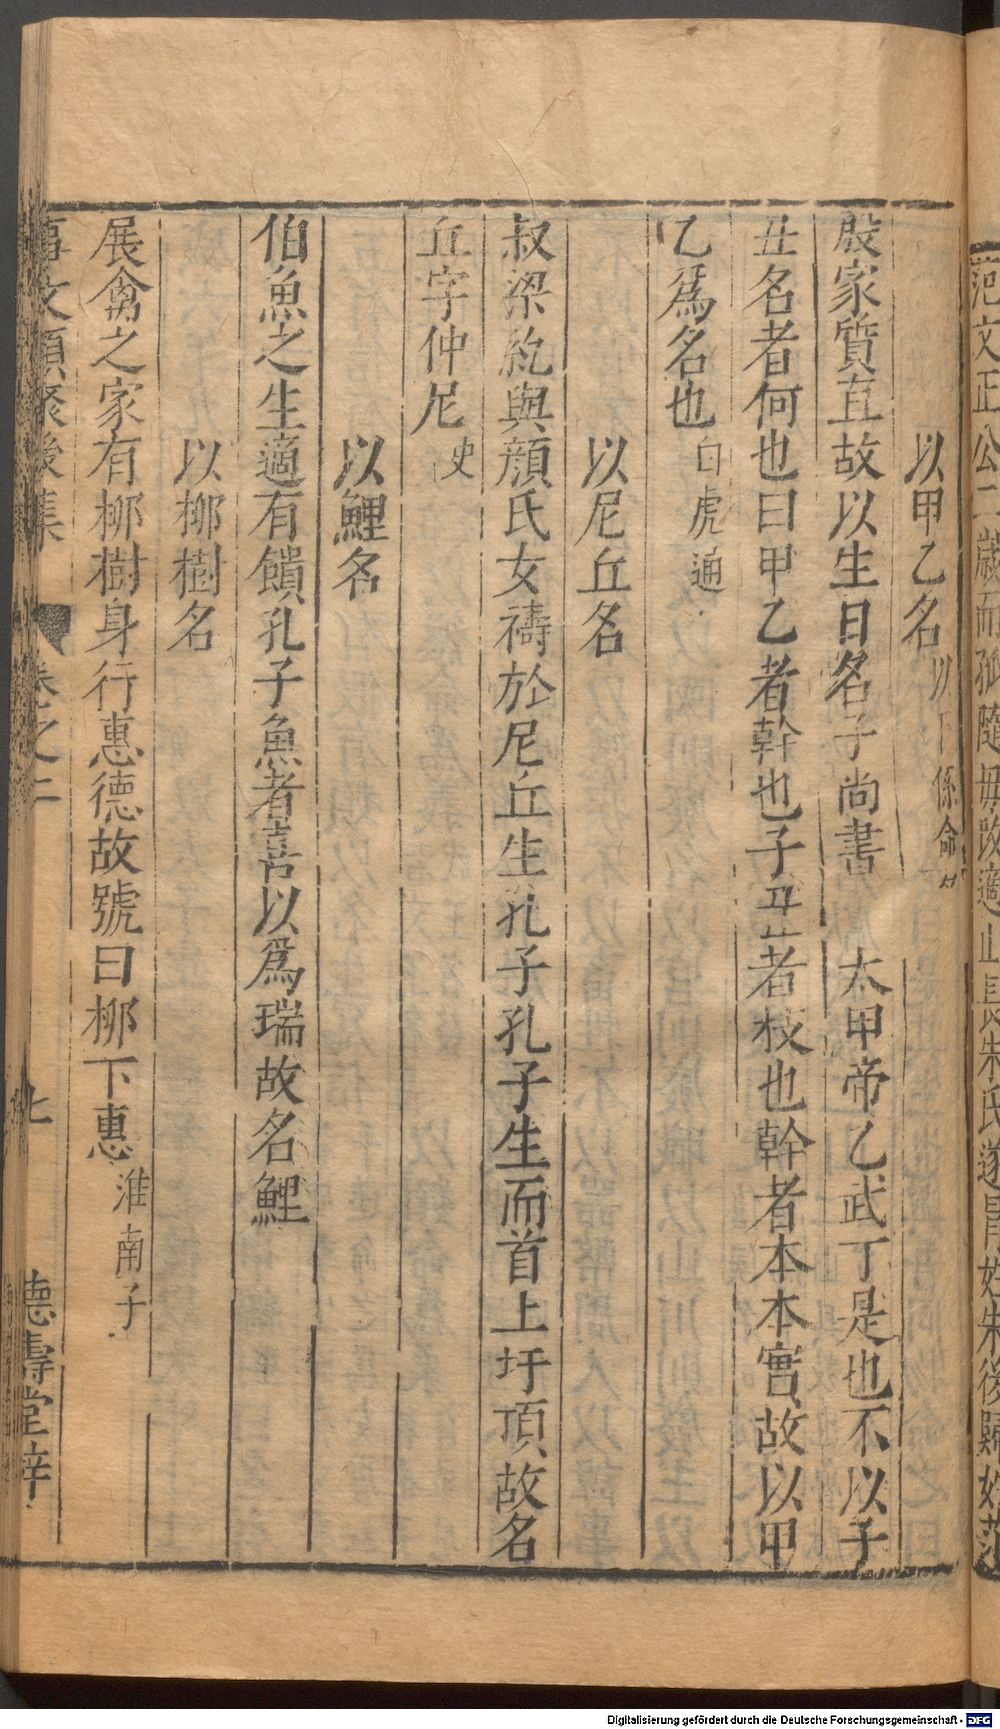 范文正公二歲而孤隨母改適山長朱氏遂冒姓朱後歸姓范
以甲乙名 以下係命名
殷家質直故以生日名子尚書 太甲帝乙武丁是也不以子
丑名者何也曰甲乙者幹也子丑者枝也幹者本本實故以甲
乙爲名也 白虎通
以尼丘名
叔梁紇與顏氏女禱於尼丘生孔子孔子生而首上圩頂故名
丘字仲尼 史
以鯉名
伯魚之生適有饋孔子魚者喜以爲瑞故名鯉
以柳樹名
展禽之家有柳樹身行惠德故號曰柳下惠 淮南子
事文類聚後集 卷之二 七 德壽堂梓
Digitalisierung gefördert durch die Deutsche Forschungsgemeinschaft - DFG